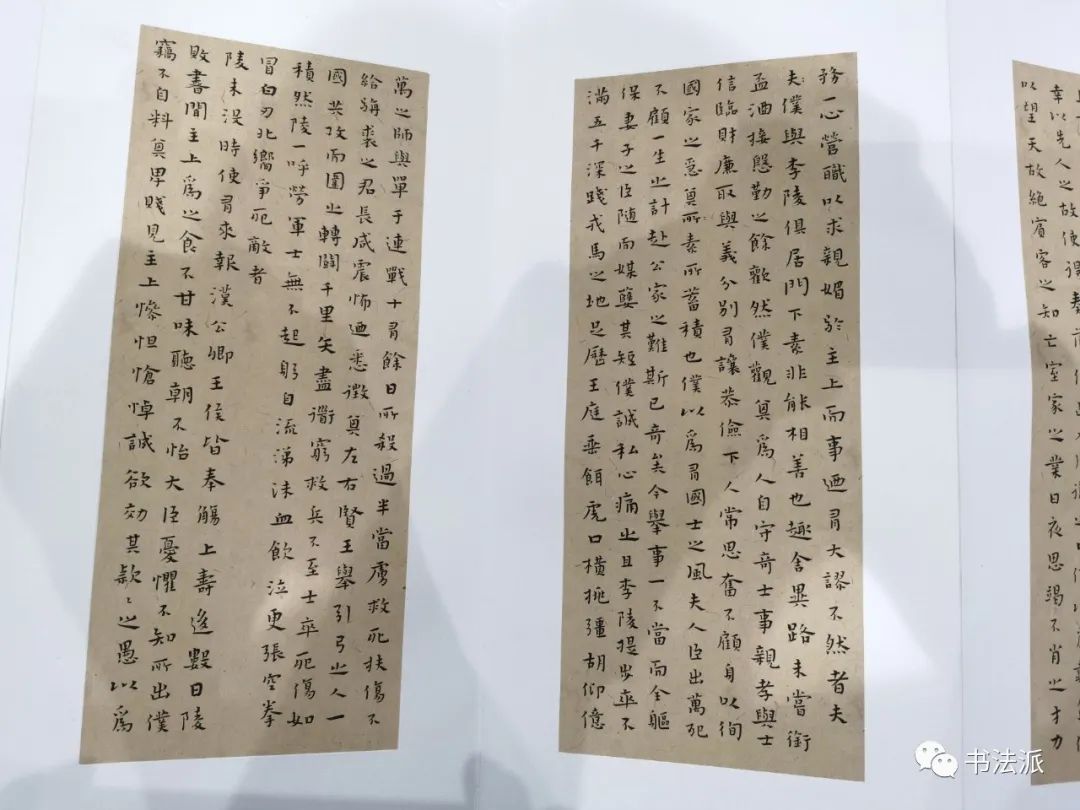 幸以先人之故使得奏
以望天故絕賓客之知亡室家之業日夜思竭不肖之才力
務一心營職以求親媚於主上而事迺有大謬不然者夫
夫僕與李陵俱居門下素非能相善也趣舍異路未嘗銜
盃酒接慇勤之餘歡然僕觀其為人自守奇士事親孝與士
信臨財廉取與義分別有讓恭儉下人常思奮不顧身以徇
國家之急其所素所蓄積也僕以為有國士之風夫人臣出萬死
不顧一生之計赴公家之難斯已奇矣今舉事一不當而全軀
保妻子之臣隨而媒孽其短僕誠私心痛之且李陵提步卒不
滿五千深踐戎馬之地足歷王庭垂餌虎口橫挑彊胡仰億
萬之師與單于連戰十有餘日所殺過半當虜救死扶傷不
給旃裘之君長咸震怖迺悉徵其左右賢王舉引弓之人一
國共攻而圍之轉鬬千里矢盡道窮救兵不至士卒死傷如
積然陵一呼勞軍士無不起躬自流涕沬血飲泣更張空拳
冒白刃北嚮爭死敵者
陵未沒時使有來報漢公卿王侯皆奉觴上壽後數日陵
敗書聞主上為之食不甘味聽朝不怡大臣憂懼不知所出僕
竊不自料其卑賤見主上慘怛愴悼誠欲効其款々之愚以為
书法派